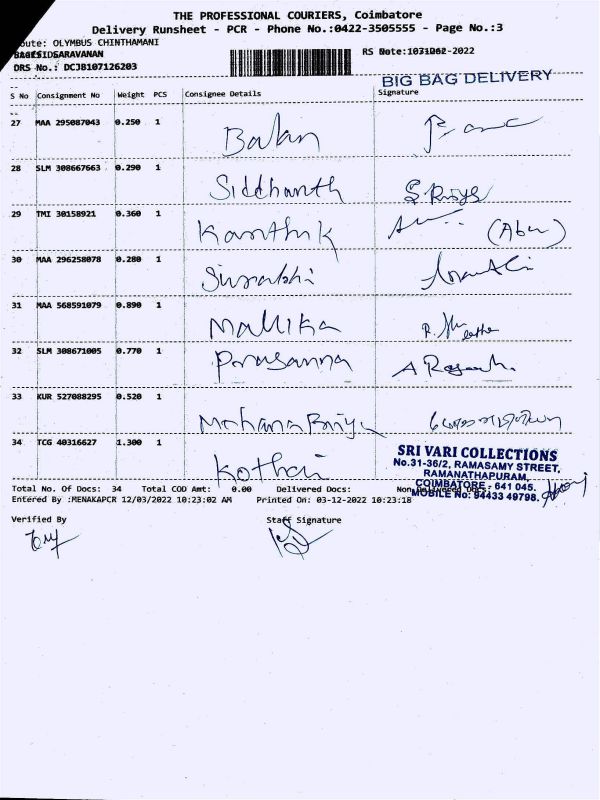 THE PROFESSIONAL COURIERS, Coimbatore
Delivery Runsheet - PCR - Phone No.:0422-3505555 - Page No.:3
oute: OLYMBUS CHINTHAMANI
SARAVANAN
RS Date:
DRS No.: DCJB107126203
BIG BAG DELIVERY
S No Consignment No Weight PCS Consignee Details Signature
27 MAA 295087043 0.250 1 Balan
28 SLM 308667663 0.290 1 Siddhanth S. Priya
29 TMI 30158921 0.360 1 Karthik (Abu)
30 MAA 296258078 0.280 1 Surabhi
31 MAA 568591079 0.890 1 Mallika
32 SLM 308671005 0.770 1 Prasanna
33 KUR 527088295 0.520 1 Mohana Priya
34 TCG 40316627 1.300 1 Kothai
SRI VARI COLLECTIONS
No.31-36/2, RAMASAMY STREET,
RAMANATHAPURAM,
COIMBATORE - 641 045.
MOBILE No: 94433 49798.
Total No. Of Docs: 34 Total COD Amt: 0.00 Delivered Docs:
Entered By :MENAKAPCR 12/03/2022 10:23:02 AM Printed On: 03-12-2022 10:23:18
Verified By Staff Signature